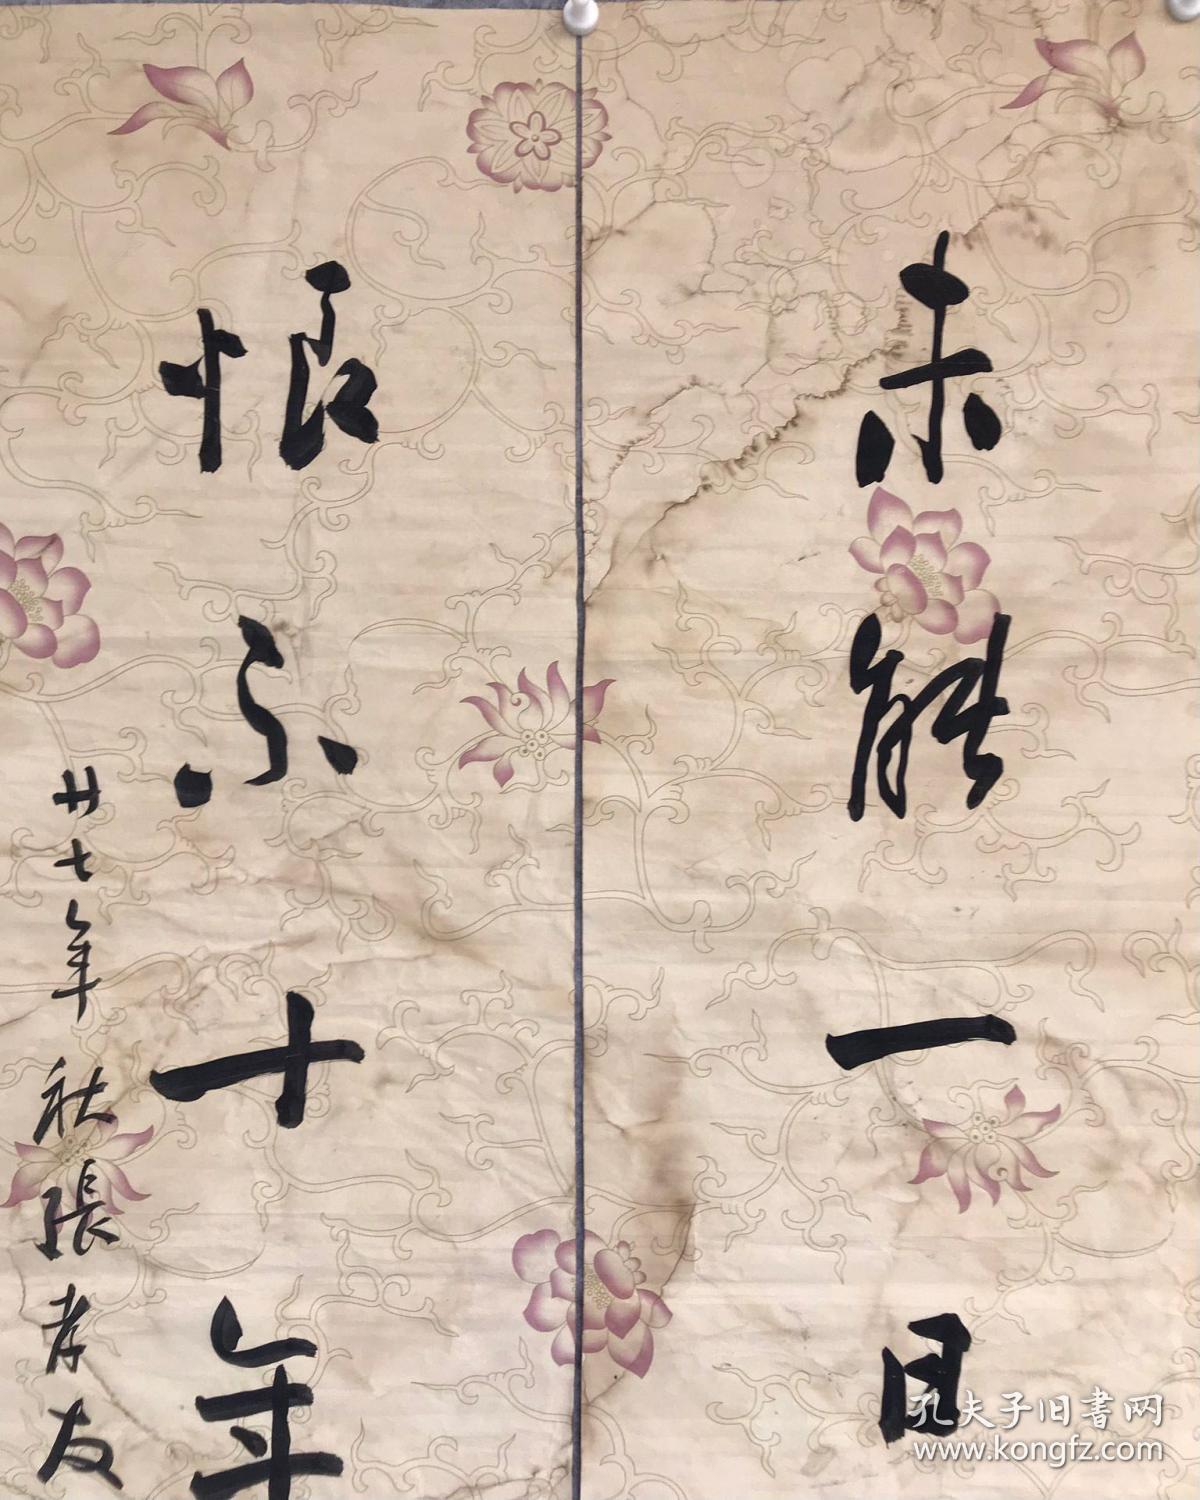 未能一日
恨不十年
廿七年 秋 張孝友
孔夫子旧書网
www.kongfz.com